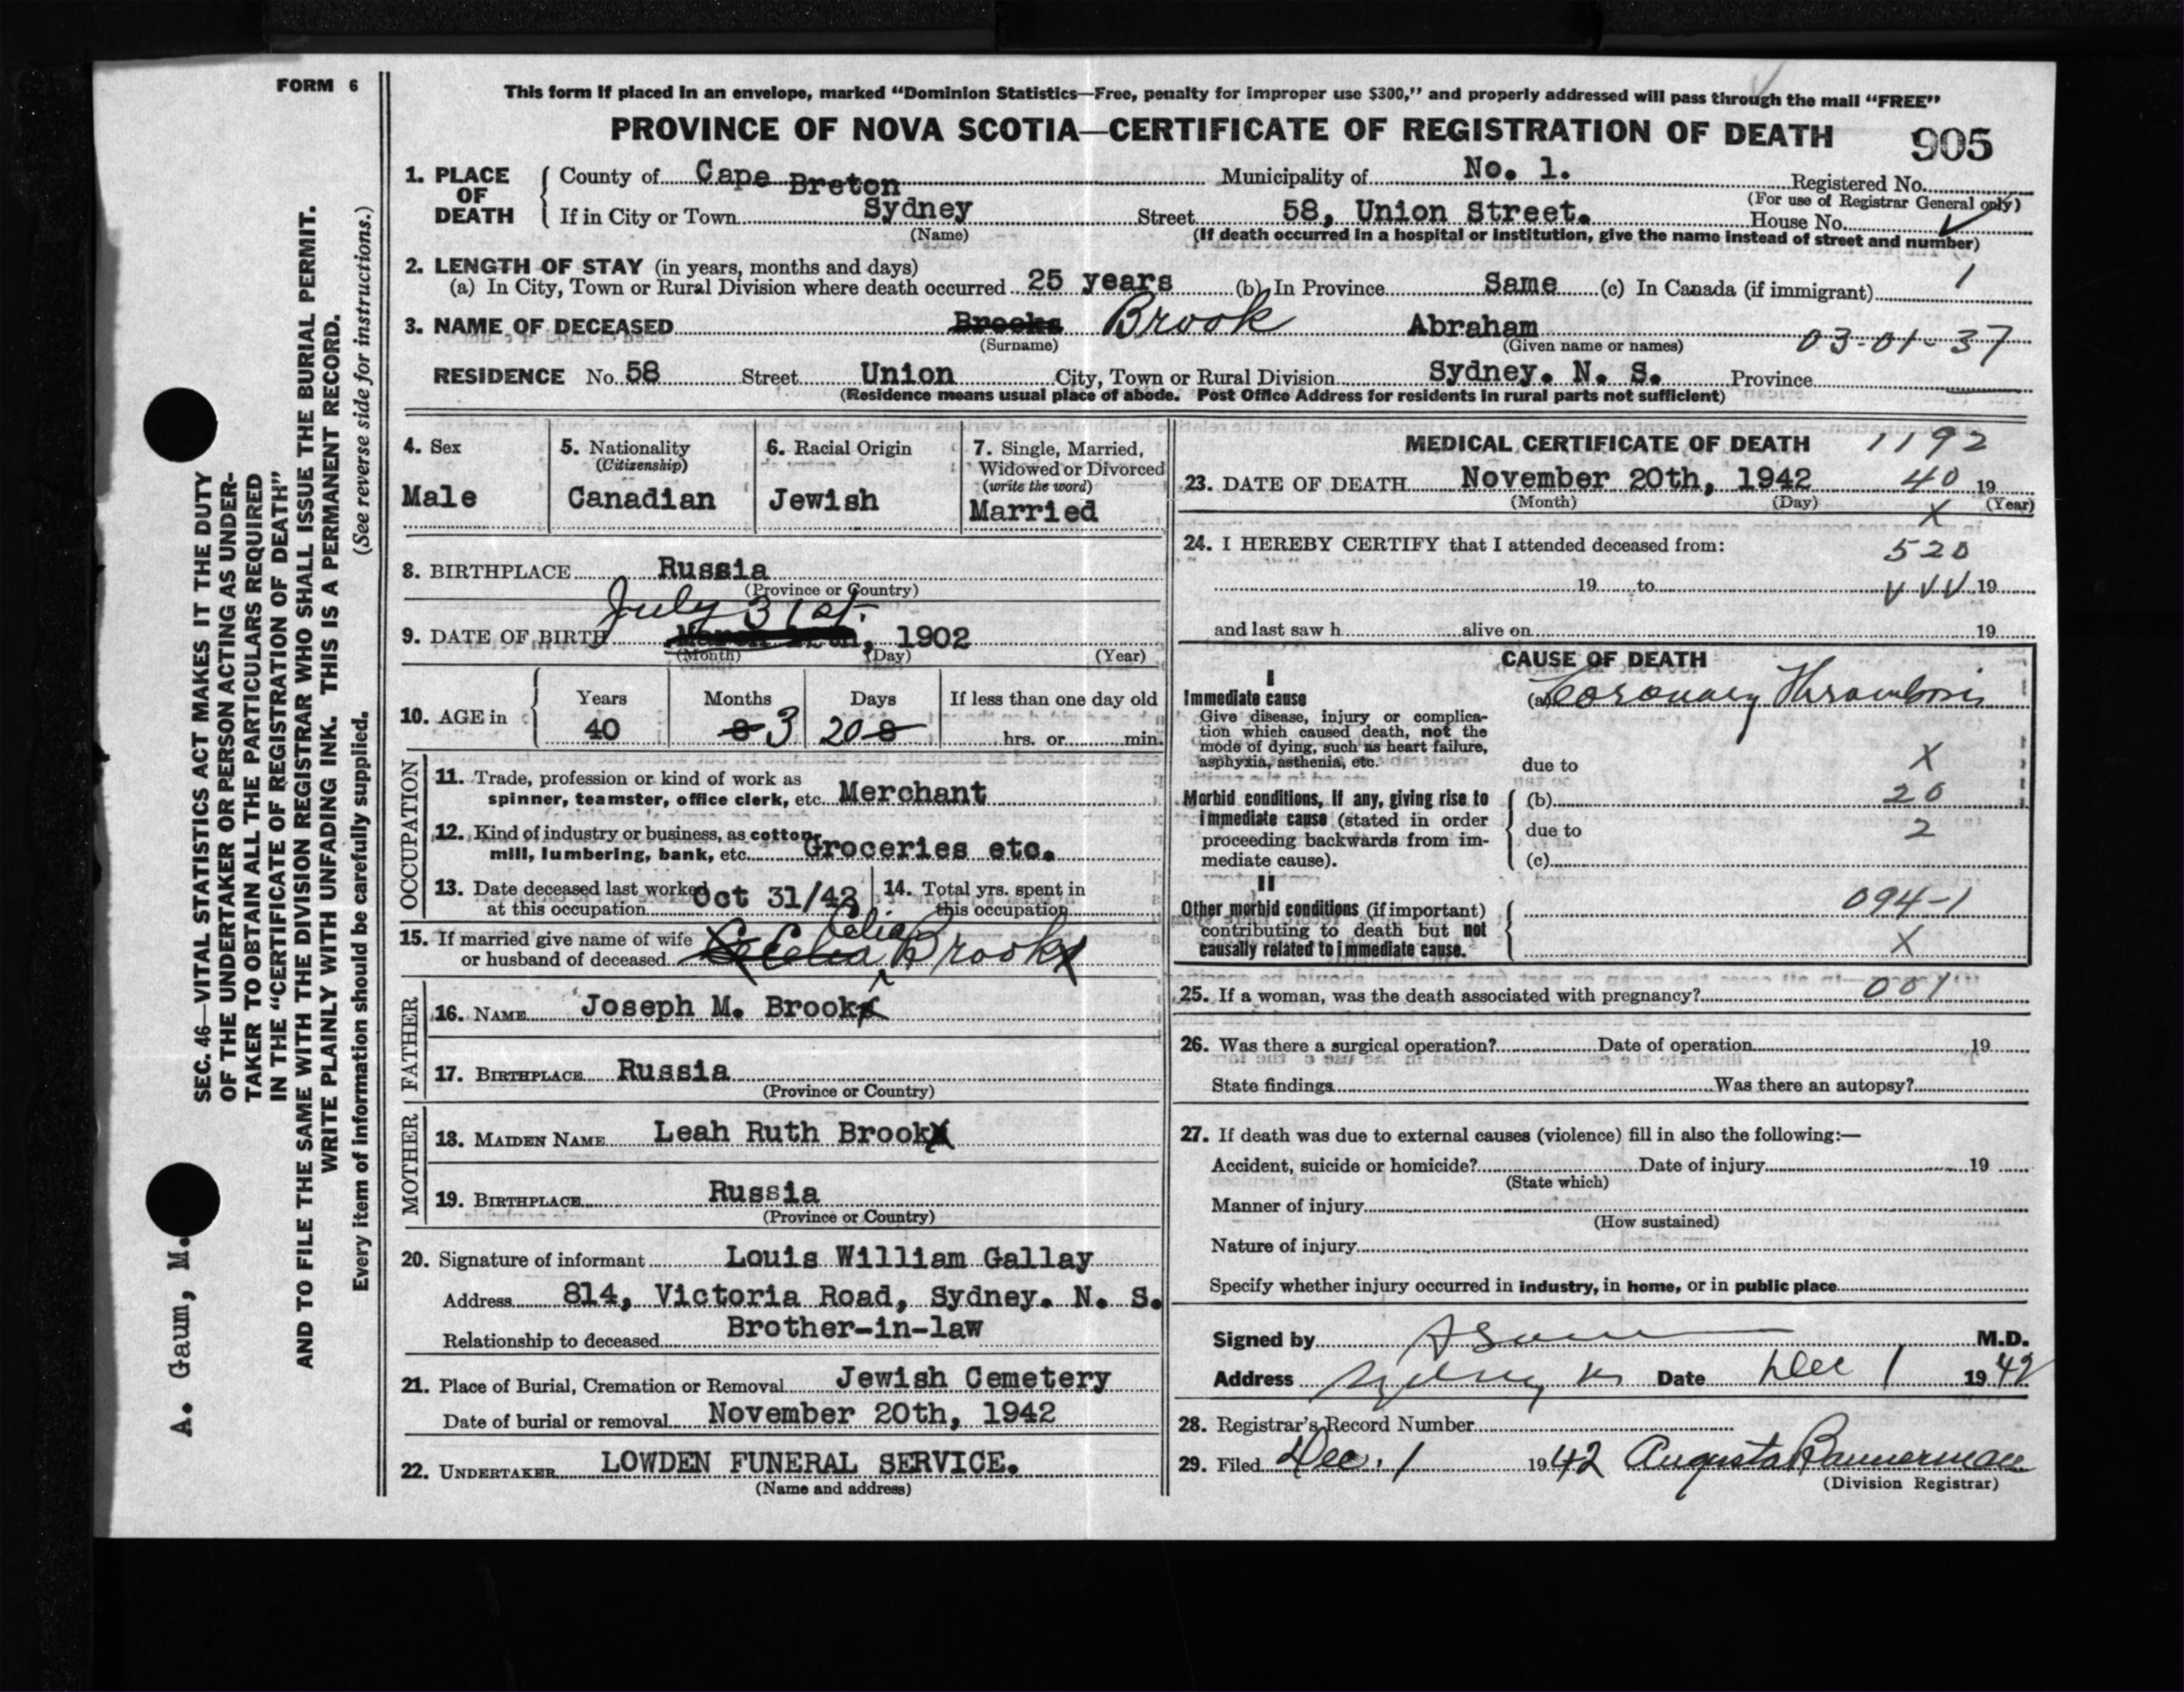 FORM 6
This form if placed in an envelope, marked “Dominion Statistics—Free, penalty for improper use $300,” and properly addressed will pass through the mail “FREE”
PROVINCE OF NOVA SCOTIA—CERTIFICATE OF REGISTRATION OF DEATH 905
1. PLACE OF DEATH
County of Cape Breton Municipality of No. 1. Registered No.
(For use of Registrar General only)
If in City or Town Sydney Street 58, Union Street. House No.
(Name) (If death occurred in a hospital or institution, give the name instead of street and number)
2. LENGTH OF STAY (in years, months and days)
(a) In City, Town or Rural Division where death occurred 25 years (b) In Province Same (c) In Canada (if immigrant) 1
3. NAME OF DECEASED Brooks Brook Abraham 03-01-37
(Surname) (Given name or names)
RESIDENCE No. 58 Street Union City, Town or Rural Division Sydney. N. S. Province
(Residence means usual place of abode. Post Office Address for residents in rural parts not sufficient)
4. Sex
Male
5. Nationality
(Citizenship)
Canadian
6. Racial Origin
Jewish
7. Single, Married,
Widowed or Divorced
(write the word)
Married
8. BIRTHPLACE Russia
(Province or Country)
July 31st.
9. DATE OF BIRTH , 1902
(Month) (Day) (Year)
10. AGE in
Years Months Days If less than one day old
40 8 3 20 8 hrs. or min.
OCCUPATION
11. Trade, profession or kind of work as
spinner, teamster, office clerk, etc. Merchant
12. Kind of industry or business, as cotton
mill, lumbering, bank, etc. Groceries etc.
13. Date deceased last worked
at this occupation Oct 31/42
14. Total yrs. spent in
this occupation
15. If married give name of wife
or husband of deceased Celia Brook
FATHER
16. NAME Joseph M. Brook
17. BIRTHPLACE Russia
(Province or Country)
MOTHER
18. MAIDEN NAME Leah Ruth Brook
19. BIRTHPLACE Russia
(Province or Country)
20. Signature of informant Louis William Gallay
Address 814, Victoria Road, Sydney. N. S.
Relationship to deceased Brother-in-law
21. Place of Burial, Cremation or Removal Jewish Cemetery
Date of burial or removal November 20th, 1942
22. UNDERTAKER LOWDEN FUNERAL SERVICE.
(Name and address)
MEDICAL CERTIFICATE OF DEATH 1192
23. DATE OF DEATH November 20th, 1942 40 19
(Month) (Day) X (Year)
24. I HEREBY CERTIFY that I attended deceased from: 520
19 to 19
and last saw h alive on 19
CAUSE OF DEATH
I
Immediate cause (a) Coronary Thrombosis
Give disease, injury or complica-
tion which caused death, not the
mode of dying, such as heart failure,
asphyxia, asthenia, etc.
due to X
Morbid conditions, if any, giving rise to
immediate cause (stated in order
proceeding backwards from im-
mediate cause).
(b) 20
due to 2
(c)
II
Other morbid conditions (if important)
contributing to death but not
causally related to immediate cause.
094-1
X
25. If a woman, was the death associated with pregnancy? 001
26. Was there a surgical operation? Date of operation 19
State findings Was there an autopsy?
27. If death was due to external causes (violence) fill in also the following:—
Accident, suicide or homicide? Date of injury 19
(State which)
Manner of injury
(How sustained)
Nature of injury
Specify whether injury occurred in industry, in home, or in public place
Signed by M.D.
Address Sydney Date Dec 1 1942
28. Registrar's Record Number
29. Filed Dec. 1 1942 Augusta Bannerman
(Division Registrar)
SEC. 46—VITAL STATISTICS ACT MAKES IT THE DUTY
OF THE UNDERTAKER OR PERSON ACTING AS UNDER-
TAKER TO OBTAIN ALL THE PARTICULARS REQUIRED
IN THE “CERTIFICATE OF REGISTRATION OF DEATH”
AND TO FILE THE SAME WITH THE DIVISION REGISTRAR WHO SHALL ISSUE THE BURIAL PERMIT.
WRITE PLAINLY WITH UNFADING INK. THIS IS A PERMANENT RECORD.
Every item of information should be carefully supplied. (See reverse side for instructions.)
A. Gaum, M.